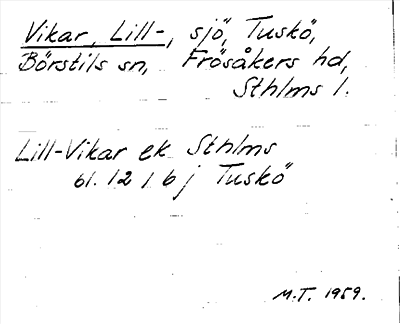 Vikar, Lill-, sjö, Tuskö,
Börstils sn, Frösåkers hd,
Sthlms l.
Lill-Vikar ek Sthlms
bl. 12 I 6 j Tuskö
M.T. 1959.